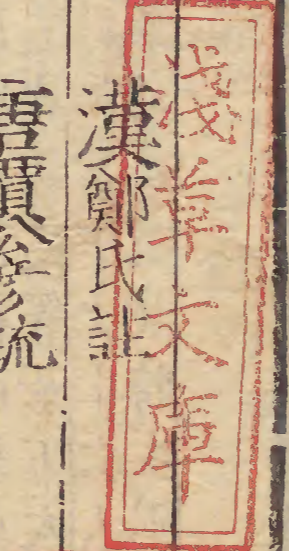 淺草文庫
漢鄭氏註
唐賈公彥疏